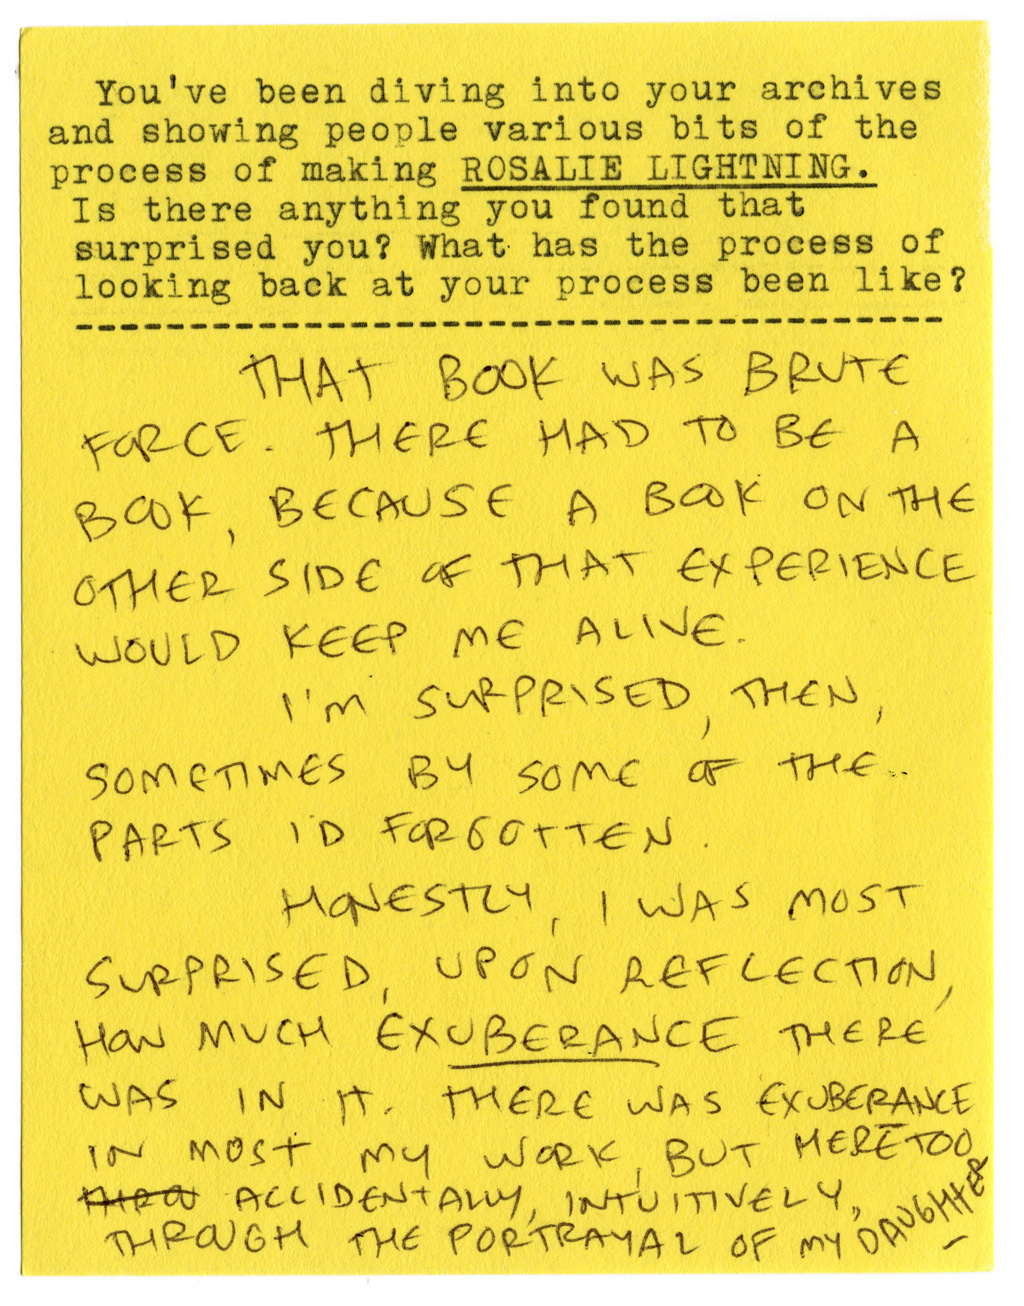 You've been diving into your archives
and showing people various bits of the
process of making ROSALIE LIGHTNING.
Is there anything you found that
surprised you? What has the process of
looking back at your process been like?
THAT BOOK WAS BRUTE
FORCE. THERE HAD TO BE A
BOOK, BECAUSE A BOOK ON THE
OTHER SIDE OF THAT EXPERIENCE
WOULD KEEP ME ALIVE.
I'M SURPRISED, THEN,
SOMETIMES BY SOME OF THE
PARTS I'D FORGOTTEN.
HONESTLY, I WAS MOST
SURPRISED, UPON REFLECTION,
HOW MUCH EXUBERANCE THERE
WAS IN IT. THERE WAS EXUBERANCE
IN MOST MY WORK, BUT HERE TOO
ACCIDENTALLY, INTUITIVELY,
THROUGH THE PORTRAYAL OF MY DAUGHTER